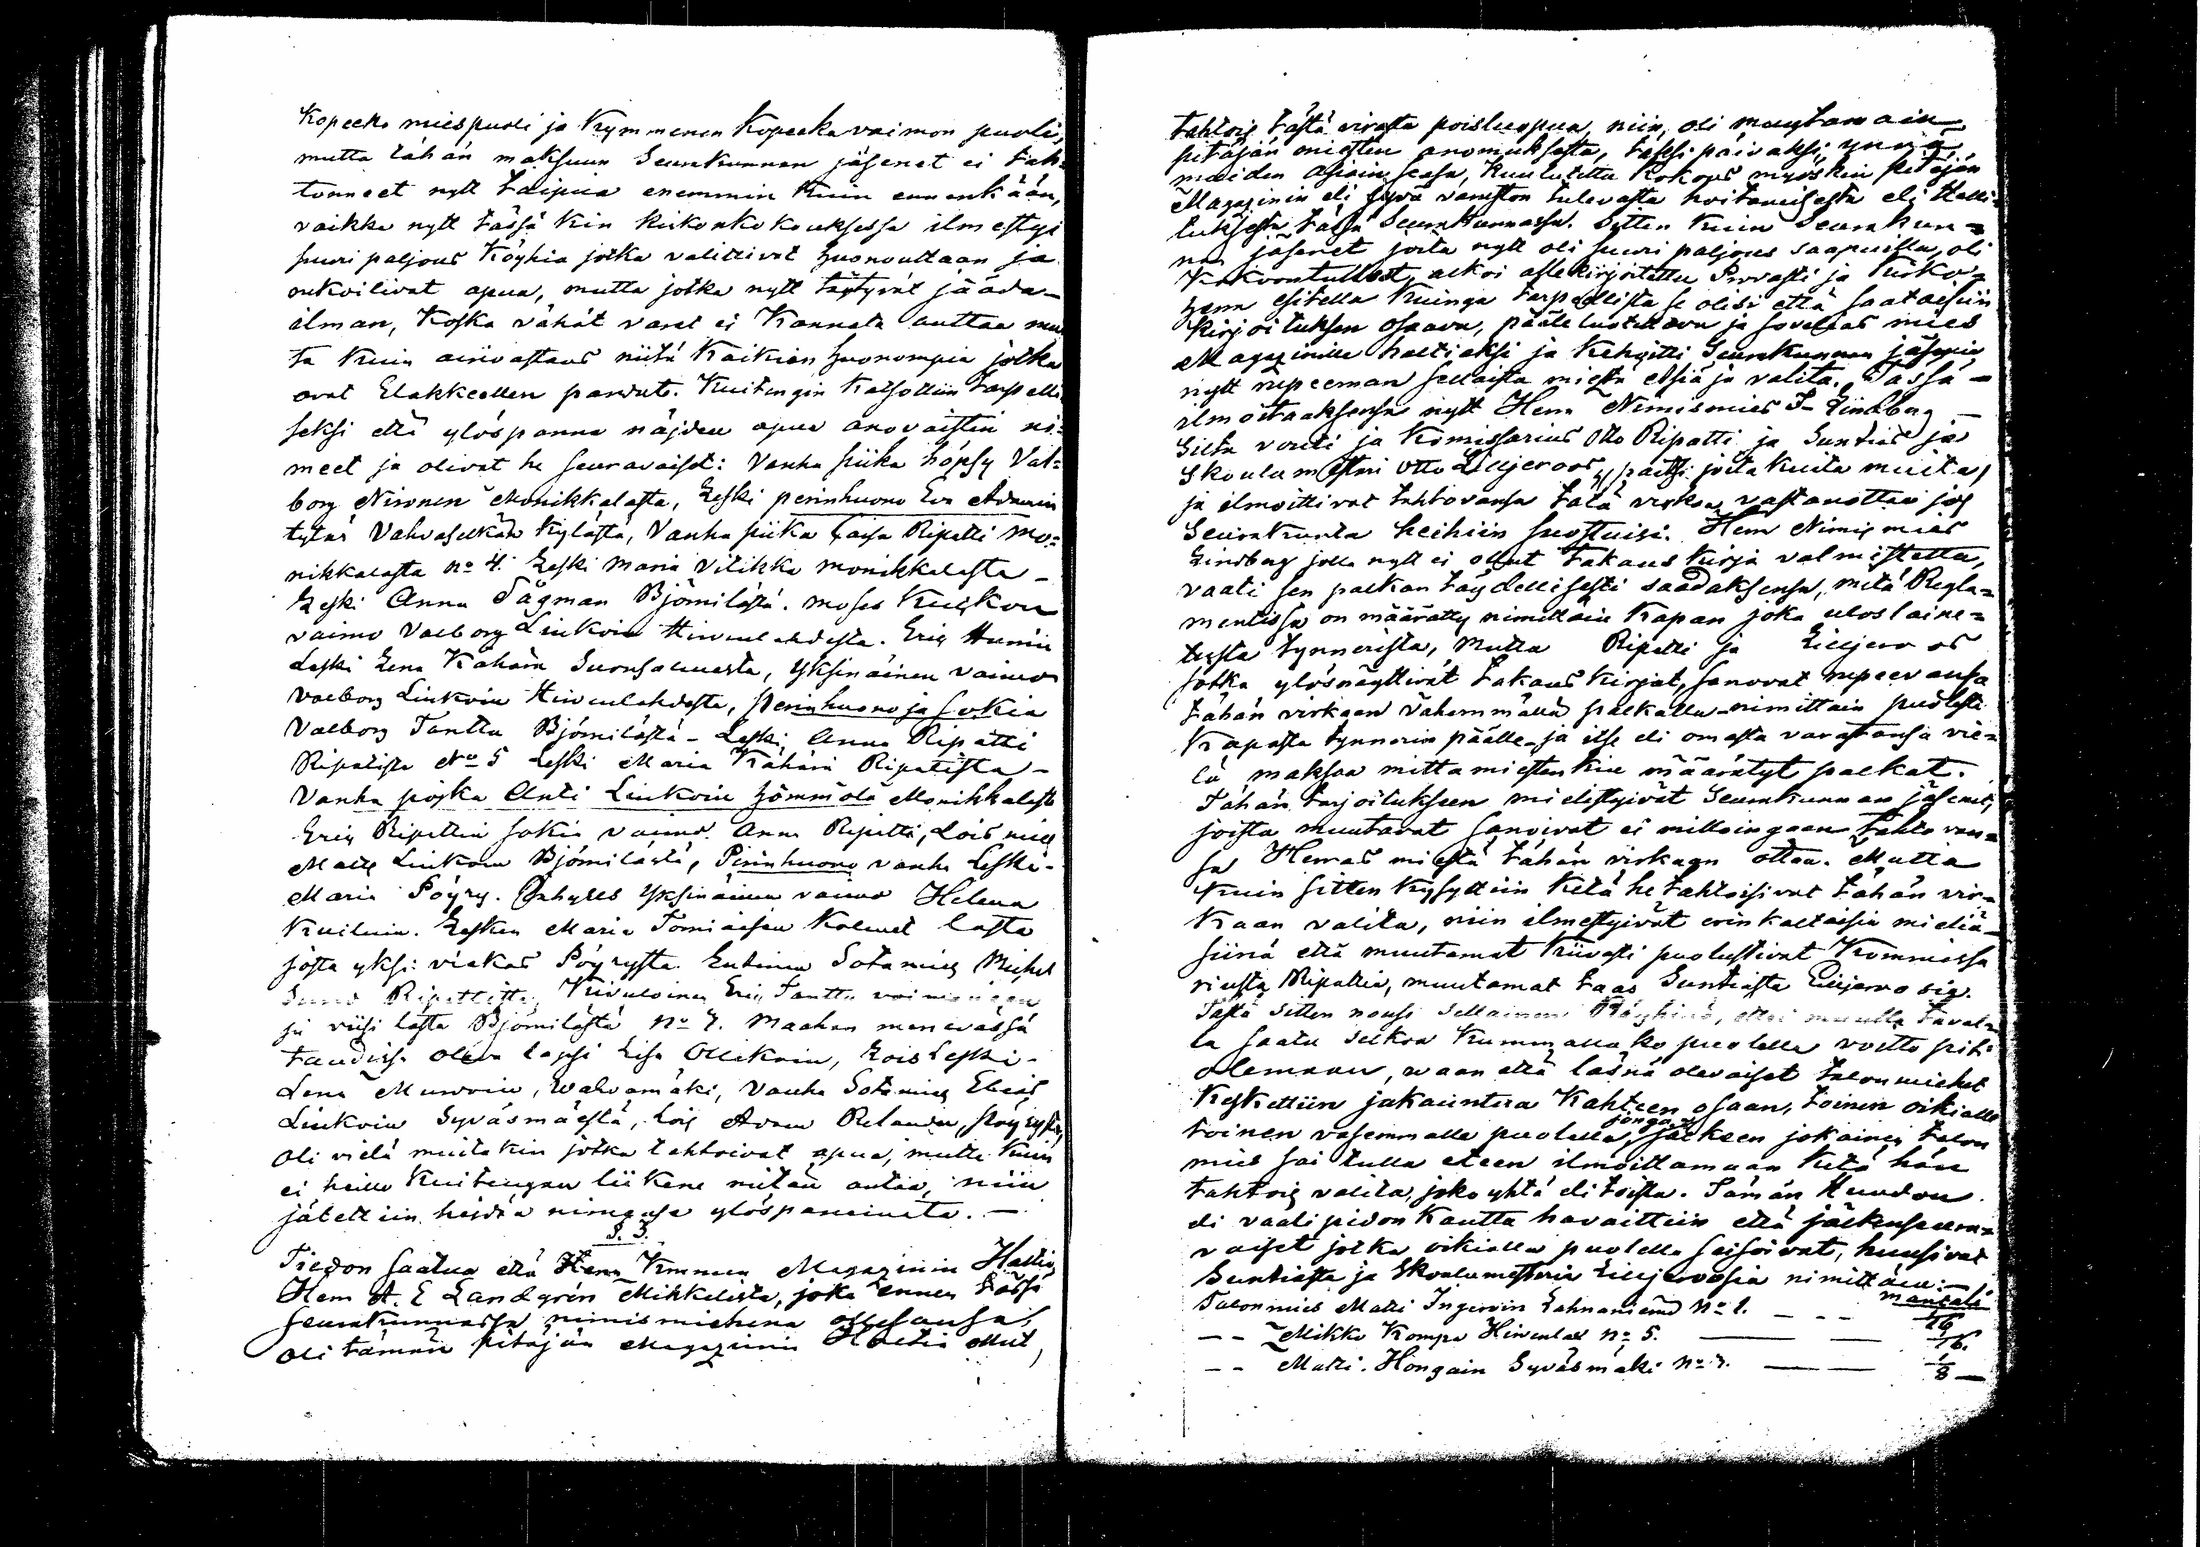 Kopecka miespuoli ja Kymmenen Kopecka vaimon puoli,
mutta tähän maksuun Seurakunnan jäsenet ei tah-
tonneet nytt taipua enemmin kuin ennenkään,
vaikka nytt tässä kin kirkonkokouksessa ilmestyi
suuri paljous köyhiä jotka valittivat huonouttaan ja
rukoilivat apua, mutta jotka nytt täytyivät jäädä
ilman, Koska vähät varat ei Kannata auttaa mui
ta kuin ainoastans niitä Kaikian huonompia jotka
ovat Elakkeellen pandut. Kuitengin Katsottiin tarpelli
seksi että ylöspanna näiden apua anovaisten ni-
meet ja olivat he seuravaiset: Vanha piika höpsy Val-
borg Nironen Monikkalasta, Leski perinhuono Eva Adamin
tytär Vahvaselkän kylästä, Vanha piika Caisa Ripatti Mo-
nikkalasta No 4. Leski Maria Vilikka Monikkalasta
Leski Anna Tägman Björnilästä. Moses Kuiskon
vaimo Valborg Linkoin Hirvenlahdesta. Eric Hunnin
Leski Lena Kähärä Suonsalmesta, Yksinäinen vaimo
Valborg Linkoin Hirvenlahdesta, perinhuono ja sokia
Valborg Tanttu Björnilästä - Leski Anna Ripatti
Ripatista No 5 Leski Maria Kähärä Ripatista -
Vanha poika Anti Linkoin hömmölä Monikkalasta
Eric Ripattin sokia vaimo Anna Ripatti, Lois mies
Matts Linkoin Björnilästä, Perinhuono vanha Leski
Maria Pöyry. Inhyses Yksinäinen vaimo Helena
Kuiluin. Lesken Maria Tomiaisen Kolmet lasta
josta yksi viekas Pöyrystä. Entinen Sotamies Michel
Sund Ripattista, Kivuloinen Eric Tanttu
ja viisi lasta Björnilästä No 7. Maahan menevässä
taudissa oleva lapsi Lisa Ollikain, Lois Leski
Lena Muuroin, Walvamäki, Vanha Sotamies Elias
Linkoin Syväsmäestä, Lois Adam Relander, Pöyrystä,
Oli vielä muitakin jotka tahtoivat apua, mutta kuin
ei heille Kuitengan liikene mitän antaa, niin
jätettiin heidän nimensä ylöspanemata. —
§. 3.
Tiedon saatua että Herra Kruunun Magazinin Haltia
Herr A. E Landgrén Mikkelistä, joka ennen tässä
seurakunnassa nimismiehena ollesansa,
Oli tämän pitäjän Magazinin Haltia ollut,
tahtois tästä virasta poisluopua, niin oli muutamain
pitäjän miesten anomuksesta, täksi päiväksi, ynnä
maiden Asiain seasa, Kuulutettu Kokous myöskin pitäjän
Magazinin eli jyvä varaston tulevasta hoitamisesta eli Halli-
tuksesta tässä Seurakunnassa. Sitten kuin Seurakun-
nan jäsenet joita nytt oli suuri paljous saapuilla, oli
Kokoontullet, alkoi allekirjoitettu Provasti ja Kirko-
herra esitellä Kuinga tarpellista se olisi että saataisiin
Kirjoituksen osaava, pääle luotettava ja soveljas mies
Magazinille haltiaksi ja Kehoitti Seurakunnan jäseniä
nytt rupeeman sellaista miestä etsiä ja valita. Tässä
ilmoitaaksensa nytt Herra Nimismies J. Lindberg
Siltavouti ja Komissarius Otto Ripatti ja Suntias ja
Skoulumestari Otto Lilljeroos, paitsi joita kuita muita,
ja ilmoittivat tahtovansa tätä virkaa vastanottaa jos
Seurakunta heihiin suostuisi. Herr Nimismies
Lindberg jolla nytt ei ollut takaus kirja valmistettu,
vaati sen palkan täydellisesti saadaksensa, mitä Regla-
mentissa on määrätty nimittäin Kapan joka uloslaine-
tusta tynnerista, Mutta Ripatti ja Lilljeroos
jotka ylösnäyttivät takaus kirjat, sanovat rupeevansa
tähän virkaan vähemmällä palkalla - nimittäin puolesta
Kapasta tynnerin päälle - ja itse eli omasta varastansa vie-
lä maksaa mittamiestenkin määrätyt palkat.
Tähän tarjoitukseen mielistyivät Seurakunnan jäsenet,
joista muutavat sanoivat ei milloingaan tahtovan-
sa Herras miestä tähän virkaan ottaa. Mutta
kuin sitten kysyttiin ketä he tahtoisivat tähän vir-
kaan valita, niin ilmestyivät erinkaltaisia mieliä
siinä että muutamat kiivasti puolustivat Kommissa
riusta Ripattia, muutamat taas Suntiasta Lilljeroosia.
Tästä sitten nousi sellainen Räyhinä, ettei muulla taval-
la saatu selkoa kummallako puolella voitto piti
olemaan, waan että läsnä olevaiset talonmiehet
Keskettiin jakauntua kahteen osaan, toinen oikialle
toinen vasemmalle puolella, jonga jälkeen jokainen talon
mies sai tulla eteen ilmoittamaan ketä hän
tahtois valita, joko yhtä eli toista. Tämän Huudon
eli vaalipidon kautta havaittiin että jälkenseura-
vaiset jotka oikialla puolella seisoivat, huusivat
Suntiasta ja Skoulumestaria Lilljeroosia nimittäin: —
mantali
Talonmies Matti Ingervin Lahnaniemi No 1. — — 1/16
— — Mikko Kompa Hirvenlax No 5. — — 1/16.
— — Matti Hongain Syväsmäki No 7. — — 1/8 —